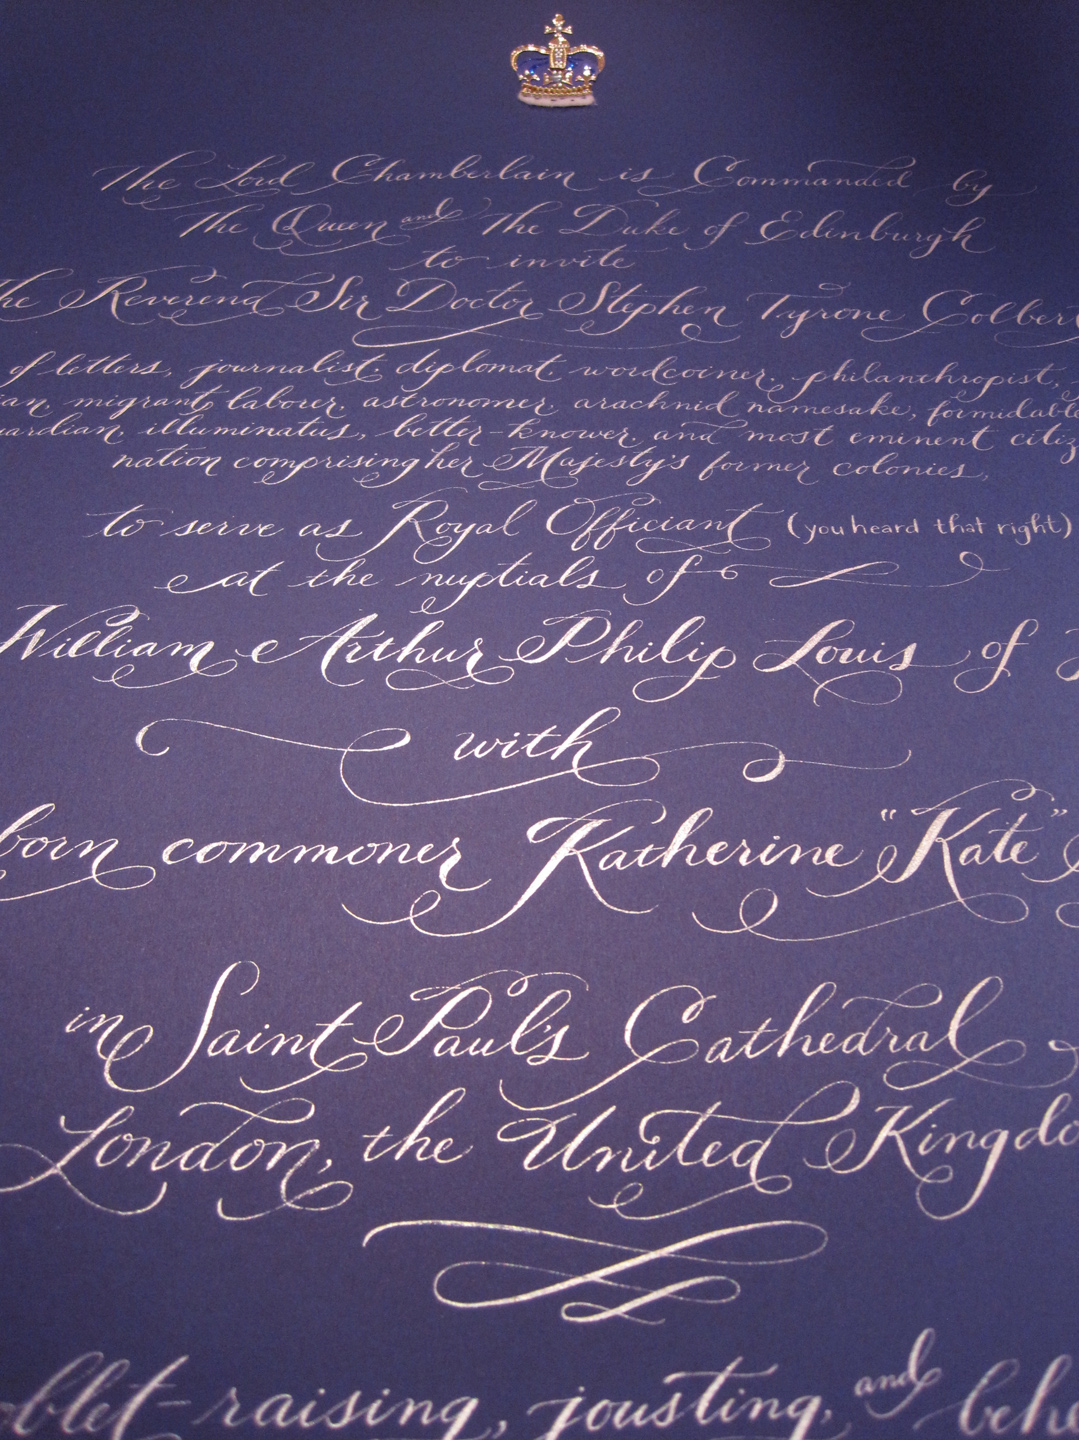 The Lord Chamberlain is Commanded by
The Queen and The Duke of Edinburgh
to invite
The Reverend Sir Doctor Stephen Tyrone Colber
of letters, journalist, diplomat, wordcoiner, philanthropist,
ian, migrant laborer, astronomer, arachnid namesake, formidable
uardian, illuminatus, better-knower, and most eminent citiz
nation comprising her Majesty's former colonies,
to serve as Royal Officiant (you heard that right)
at the nuptials of
William Arthur Philip Louis of
with
born commoner Katherine "Kate"
in Saint Paul's Cathedral
London, the United Kingdo
oblet-raising, jousting, and behe